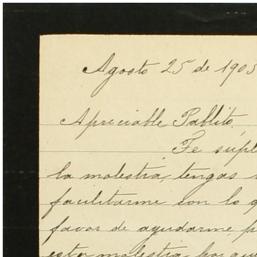 Agosto 25 de 1905
Apreciable Pablito.
Te súpl
la molestia, tengas
facilitarme con lo q
favor de ayudarme p
esta molestia, por que